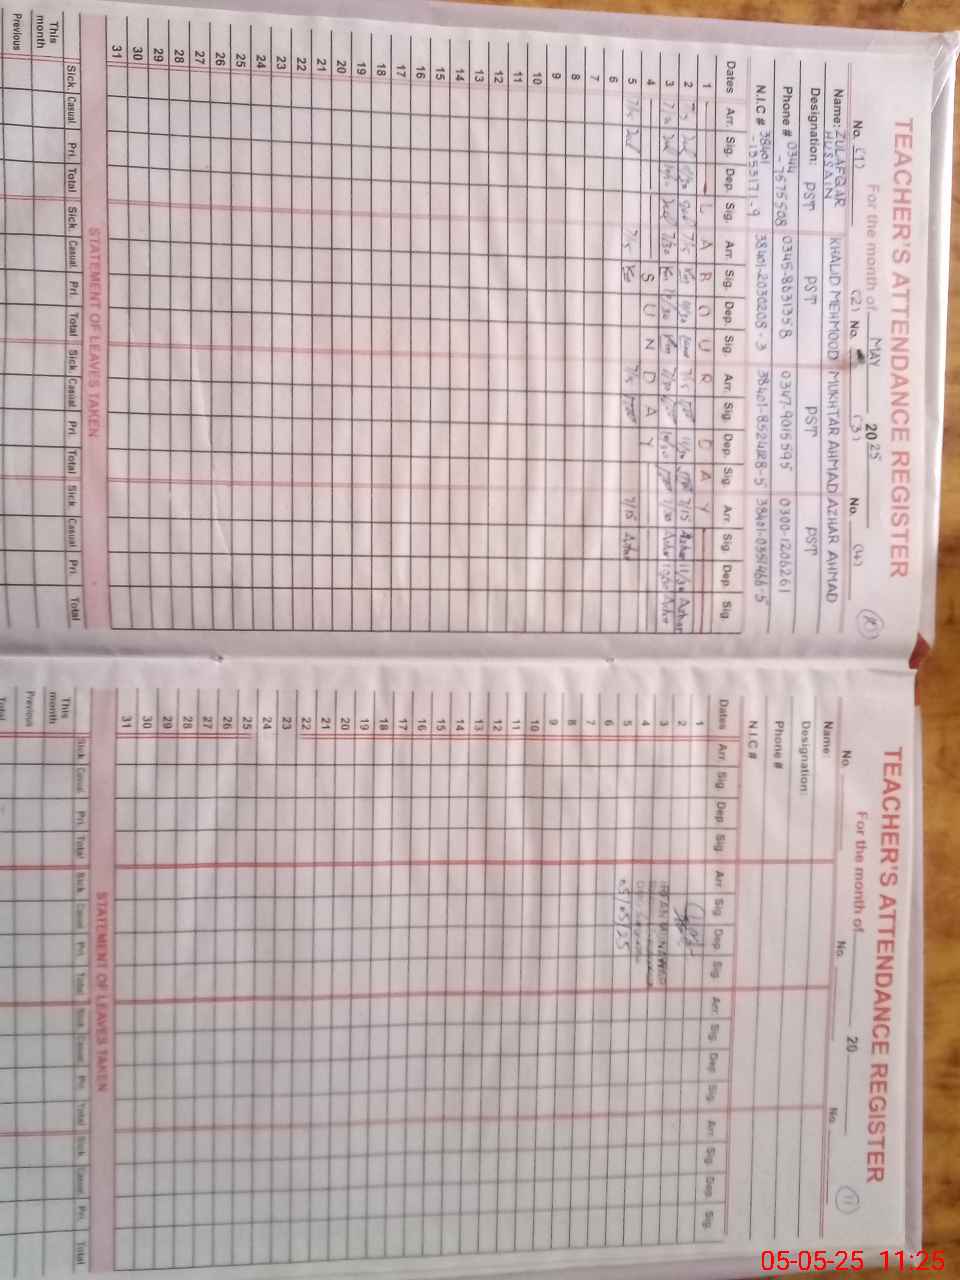 TEACHER'S ATTENDANCE REGISTER
For the month of MAY 2025
(10)
No. (1) (2) No. (3) No. (4)
Name: ZULAFQAR HUSSAIN KHALID MEHMOOD MUKHTAR AHMAD AZHAR AHMAD
Designation: PST PST PST PST
Phone # 0344-7575508 0345-8631358 0347-9015595 0300-1206261
N.I.C # 38401 38401-2030208-3 38401-8524128-5 38401-0351466-5
Dates Arr. Sig. Dep. Sig. Arr. Sig. Dep. Sig. Arr. Sig. Dep. Sig. Arr. Sig. Dep. Sig.
1 L A B O U R D A Y
2 7/15 11/30 7/15 11/30 7/15 11/30 7/15 Azhar 11/30 Azhar
3 7/30 7/30 7/30 7/30 Azhar Azhar
4 S U N D A Y
5 7/15 7/15 7/15 7/15 Azhar
6
7
8
9
10
11
12
13
14
15
16
17
18
19
20
21
22
23
24
25
26
27
28
29
30
31
STATEMENT OF LEAVES TAKEN
Sick. Casual Pri. Total Sick. Casual. Pri. Total Sick. Casual. Pri. Total Sick. Casual. Pri. Total
This month
Previous
TEACHER'S ATTENDANCE REGISTER
For the month of 20
(11)
No. No. No.
Name:
Designation:
Phone #
N.I.C #
Dates Arr. Sig. Dep. Sig. Arr. Sig. Dep. Sig. Arr. Sig. Dep. Sig. Arr. Sig. Dep. Sig.
1
2
3 IRFAN MUNAWAR
4
5 05/05/25
6
7
8
9
10
11
12
13
14
15
16
17
18
19
20
21
22
23
24
25
26
27
28
29
30
31
STATEMENT OF LEAVES TAKEN
Sick. Casual. Pri. Total Sick. Casual. Pri. Total Sick. Casual. Pri. Total Sick. Casual. Pri. Total
This month
Previous
Total
05-05-25 11:25